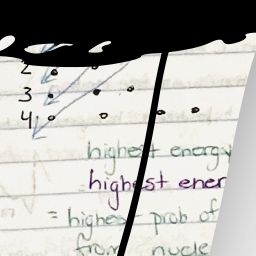 2
3
4
highest energy
highest ener
= highest prob of
from nucle